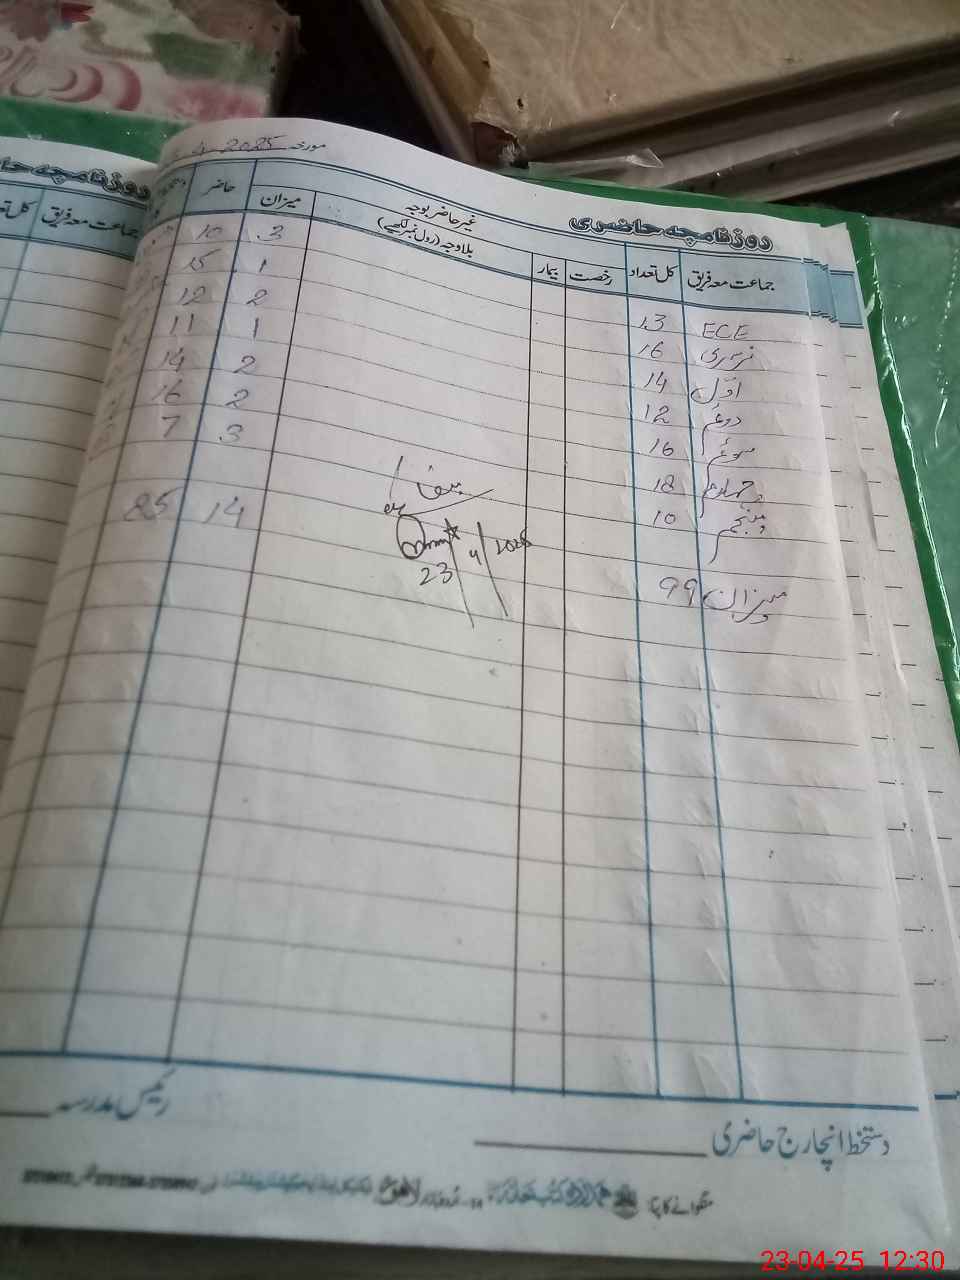 مورخہ 4 2025
روزنامچہ حاضری
جماعت معہ فریق کل تعداد رخصت بیمار غیر حاضر بوجہ بلاوجہ (رول نمبر لکھیے) میزان حاضر
ECE 13 3 10
نرسری 16 1 15
اوّل 14 2 12
دوئم 12 1 11
سوئم 16 2 14
چہارم 18 2 16
پنجم 10 3 7
میزان 99 14 85
23/4/2025
دستخط انچارج حاضری
رئیس مدرسہ
منگوانے کا پتا:
روزنامچہ حا
جماعت معہ فریق
23-04-25 12:30